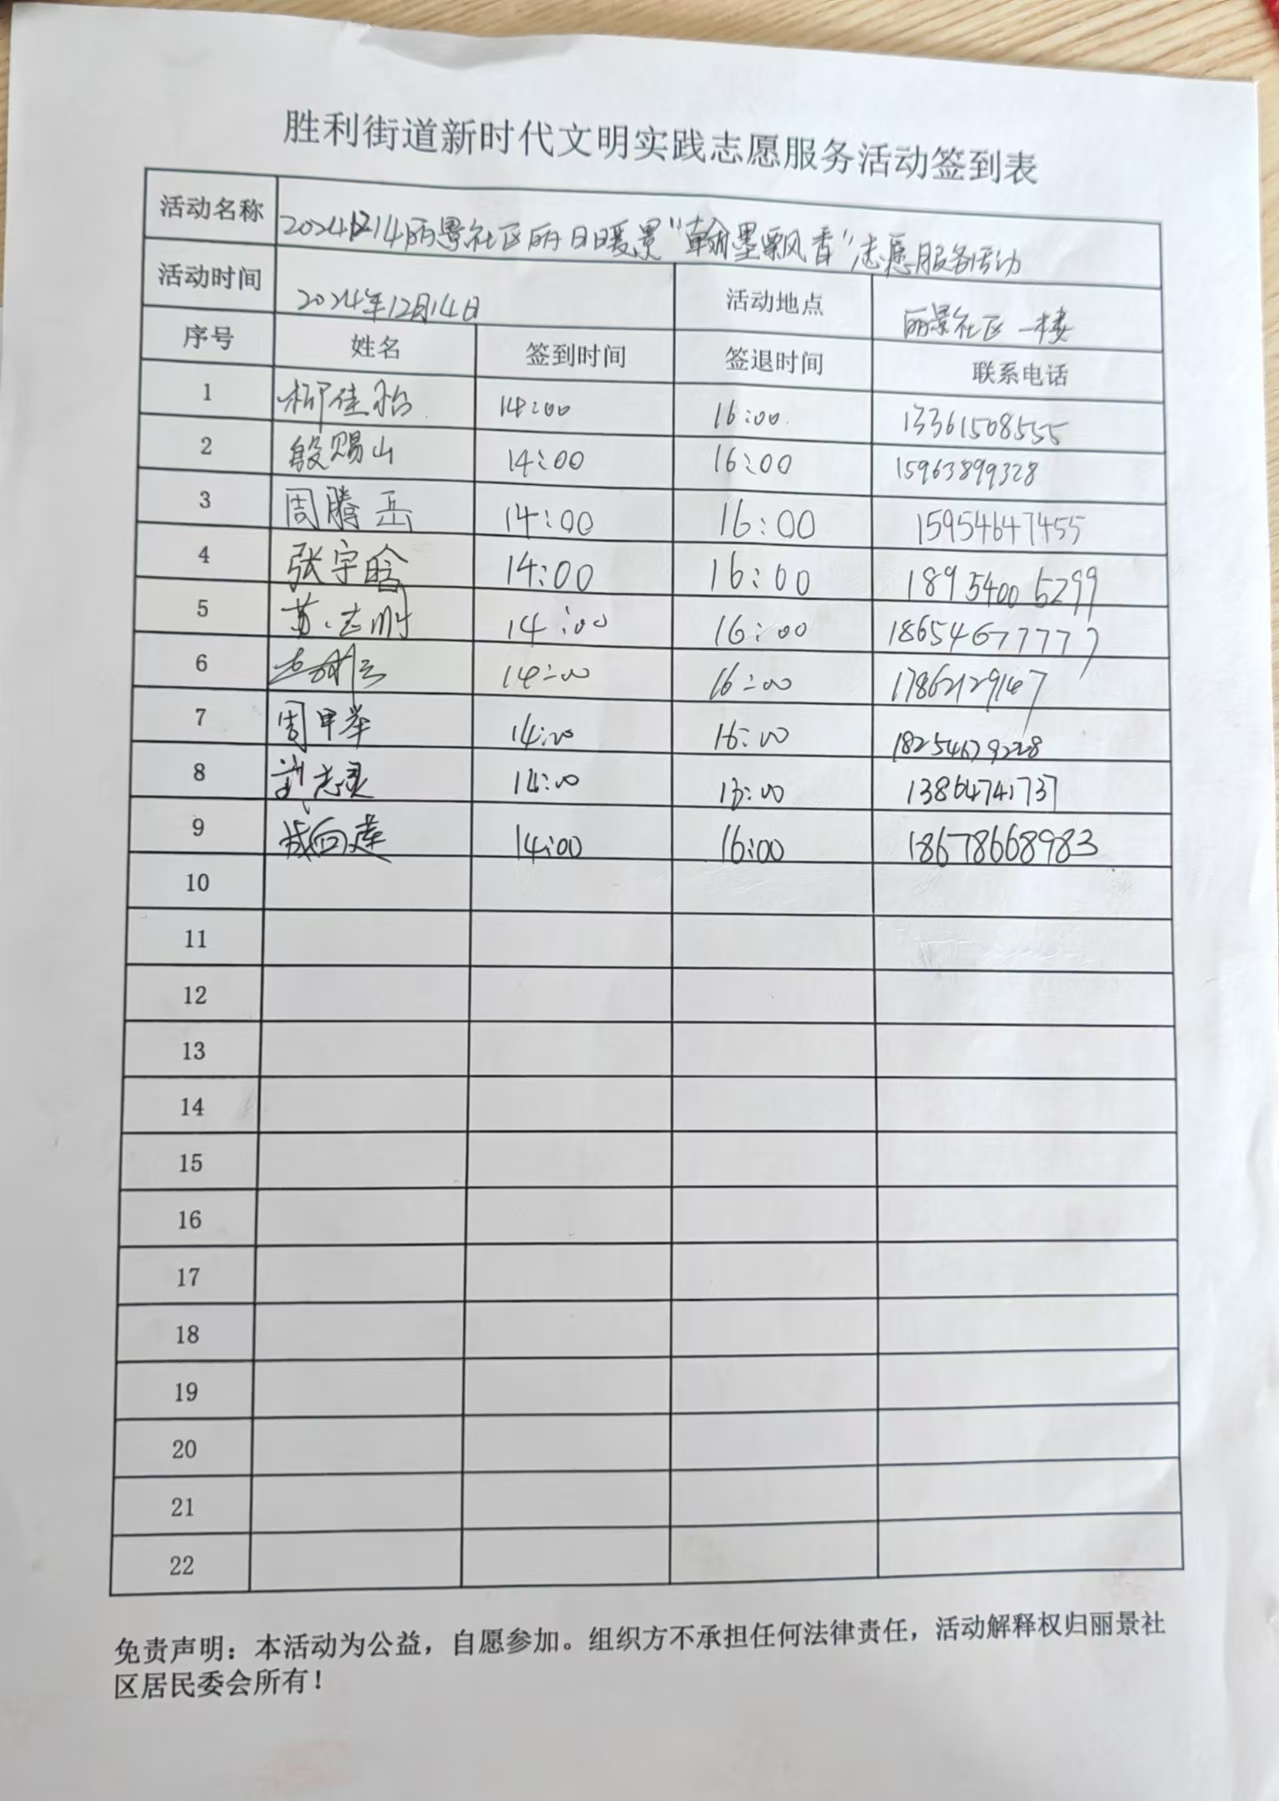 胜利街道新时代文明实践志愿服务活动签到表
活动名称 2024.12.14丽景社区丽日暖景“翰墨飘香”志愿服务活动
活动时间 2024年12月14日 活动地点 丽景社区一楼
序号 姓名 签到时间 签退时间 联系电话
1 柳佳怡 14:00 16:00 13361508555
2 殷赐山 14:00 16:00 15963899328
3 周腾岳 14:00 16:00 15954647455
4 张宇晗 14:00 16:00 18954005299
5 苏志刚 14:00 16:00 18654677777
6 14:00 16:00 17862129147
7 周甲举 14:00 16:00 18254679228
8 刘志灵 14:00 16:00
9 成向莲 14:00 16:00 18678668983
10
11
12
13
14
15
16
17
18
19
20
21
22
免责声明：本活动为公益，自愿参加。组织方不承担任何法律责任，活动解释权归丽景社
区居民委会所有！